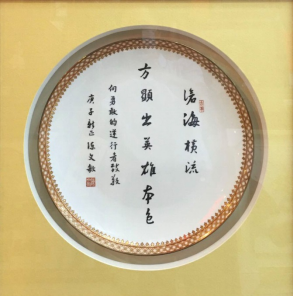 滄海橫流
方顯出英雄本色
向勇敢的逆行者致敬
庚子新正 陈文敏